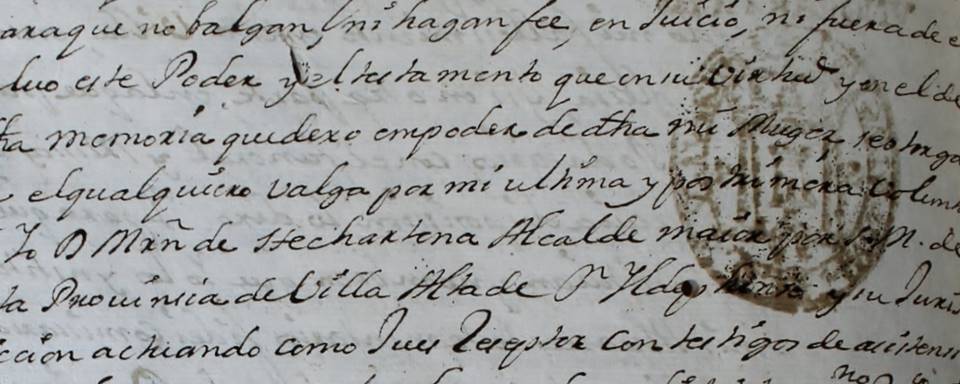 araque no balgan, ni hagan fee, en Juicio, ni fuera de e
luo este Poder y el testamento que en su Virtud y en el de
ha memoria que dexo em poder de dha mi Muger, se otorga
el qual quiero valga por mi ultima y postrimera volun
Yo D Mrn de Stechartena Alcalde maior por S. M. de
ta Provinsia de Villa Alta de Sn Yldephonso y su Juris
ccion actuando como Jues Reseptor con testigos de asistens